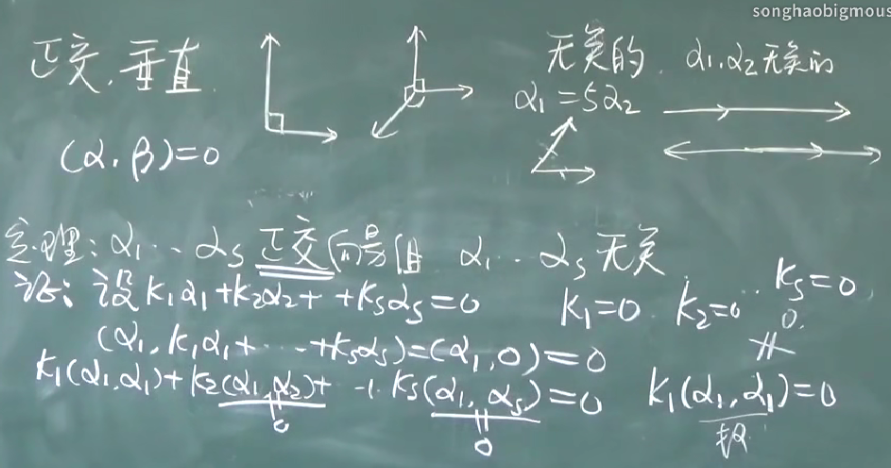 songhaobigmous
正交,垂直
无关的. α₁,α₂无关的
α₁=5α₂
(α,β)=0
定理:α₁…αₛ正交向量组 α₁…αₛ无关
证:设k₁α₁+k₂α₂+ +kₛαₛ=0 k₁=0 k₂=0 … kₛ=0
(α₁,k₁α₁+…+kₛαₛ)=(α₁,0)=0
k₁(α₁,α₁)+k₂(α₁,α₂)+…+kₛ(α₁,αₛ)=0 k₁(α₁,α₁)=0
0 0